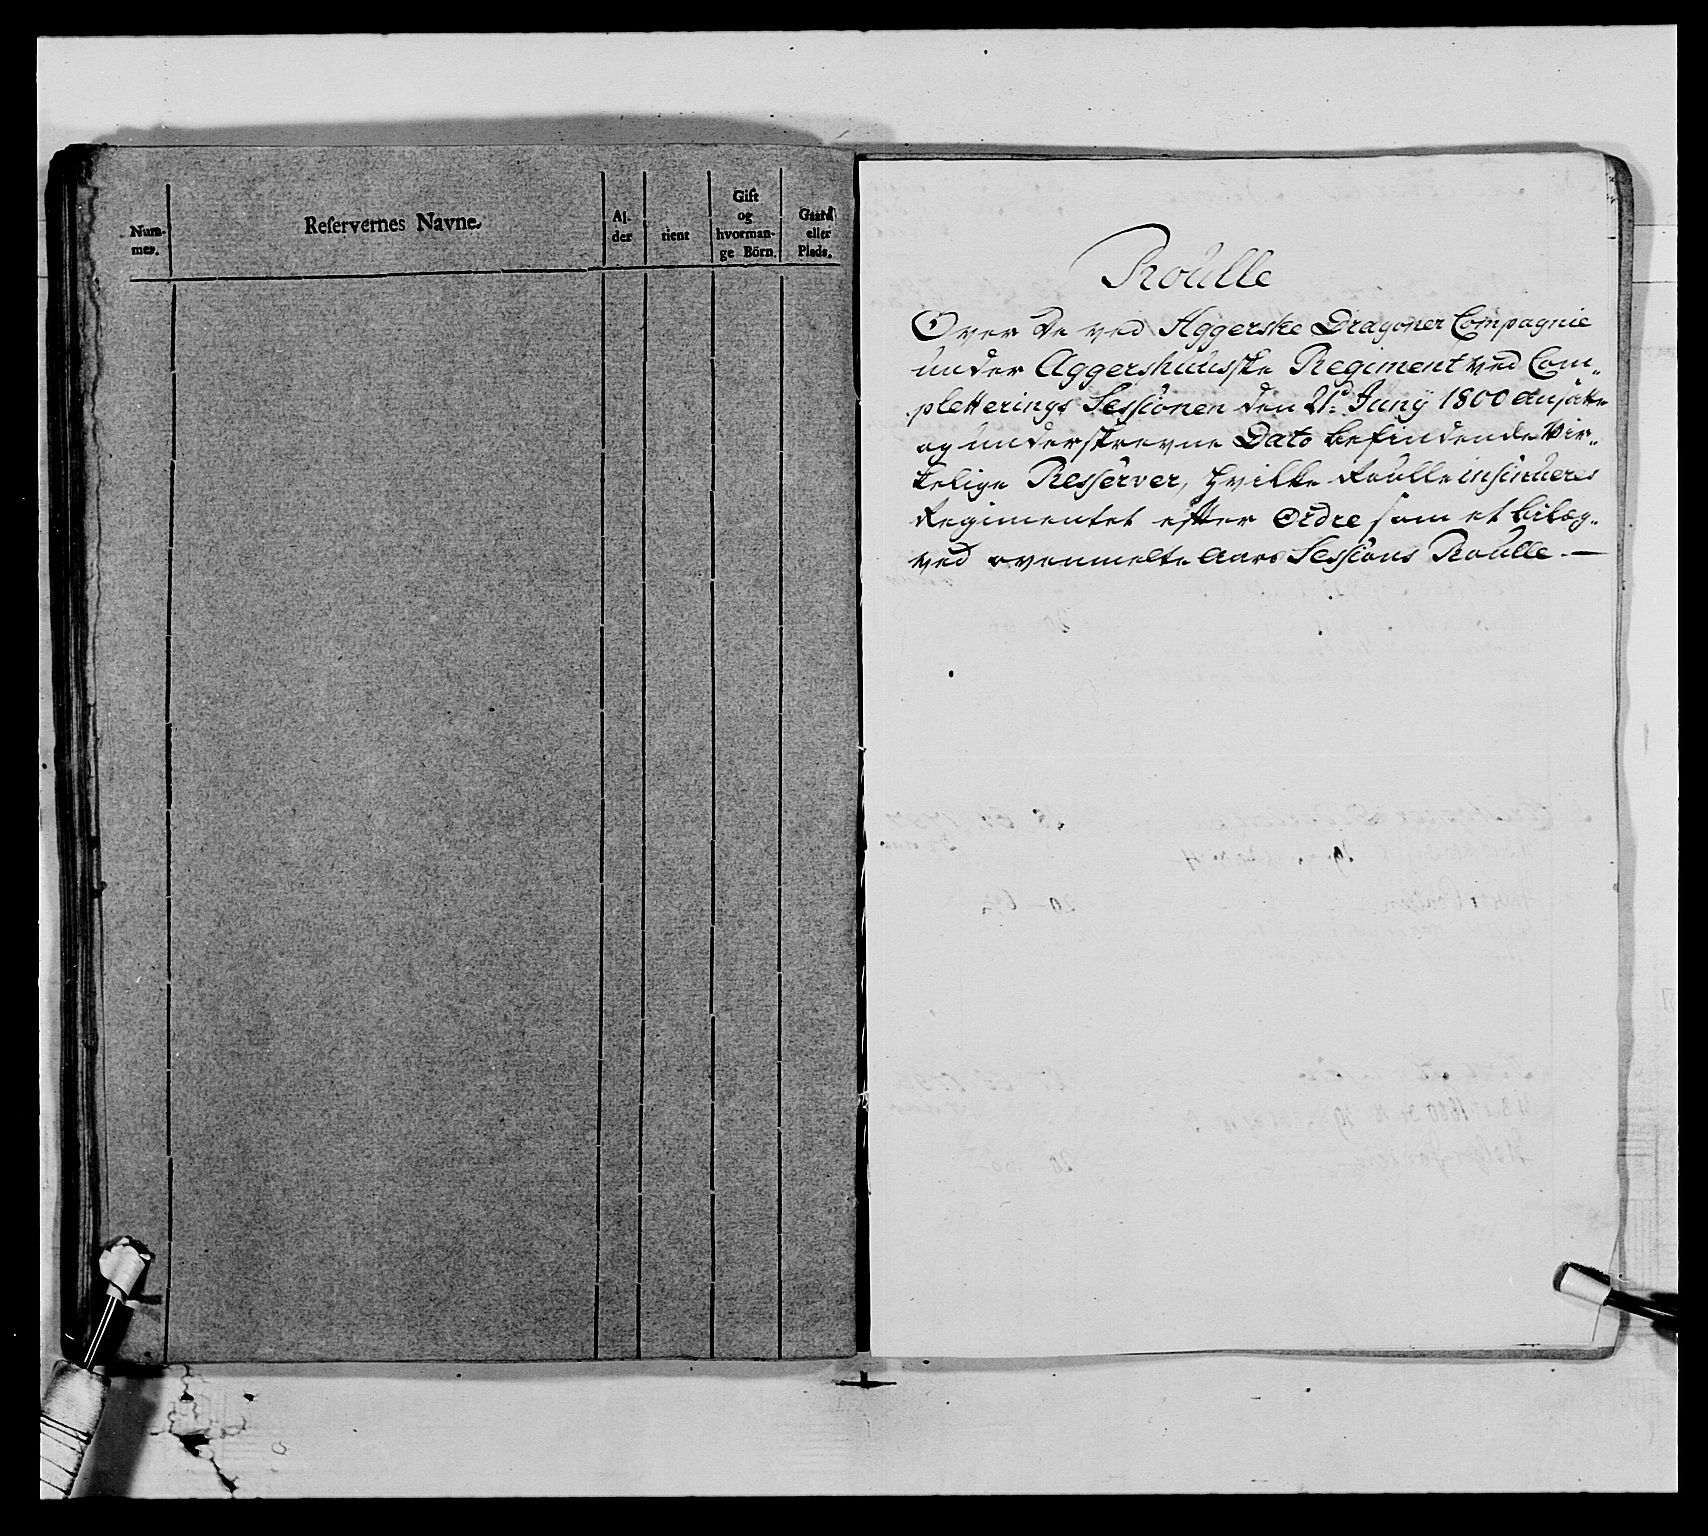 Num-
mer.
Reservernes Navne.
Al-
der
tient
Gift
og
hvorman-
ge Börn.
Gaard
eller
Plads.
Roulle
Over de ved Aggerske Dragoner Compagnie
under Aggershuusske Regiment ved Com-
pletterings Sessionen den 21de Junÿ 1800 ansatte
og underskrevne Dato befindende Vir-
kelige Resserver, hvilke Roulle insinueres
Regimentet efter Ordre som et bilag
ved ovenmelte Aars Sessions Roulle.—